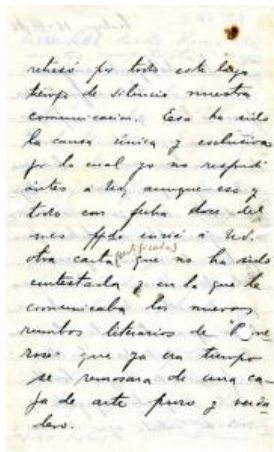 retrasó por todo este largo
tiempo de silencio nuestra
comunicación. Esa ha sido
la causa única y exclusiva
por la cual yo no respondí
antes a Ud, aunque eso y
todo con fecha doce del
mes ppdo envié á Ud.
otra carta (certificada) que no ha sido
contestada y en la que le
comunicaba los nuevos
rumbos literarios de
que ya era tiempo
se remozara de una ca-
ja de arte puro y verda-
dero.